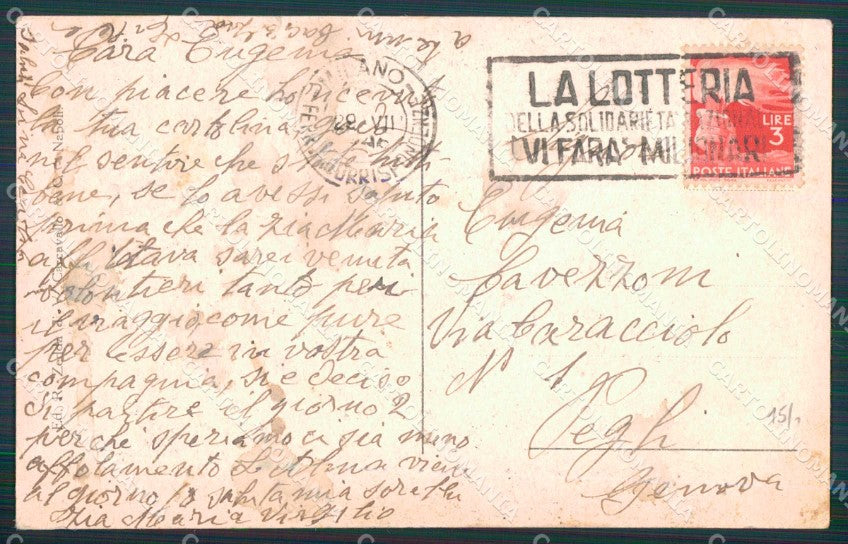 Cara Eugema
Con piacere ho ricevuto
la tua cartolina, godo
nel sentire che state tutti
bene, se lo avessi saputo
prima che la zia Maria
affittava sarei venuta
volontieri tanto per
il viaggio come pure
per essere in vostra
compagnia, si e deciso
di partire il giorno 2
perchè speriamo ci sia meno
affolamento
al giorno saluta mia sorella
zia Maria Virgilio
MILANO
FERROVIA
CORRISP
LA LOTTERIA
DELLA SOLIDARIETA' NAZIONALE
VI FARA' MILIONARI
LIRE
3
POSTE ITALIANE
Eugema
Cavezzoni
Via Caracciolo
N 1
Pegli
Genova
15/-
CARTOLINOMANIA